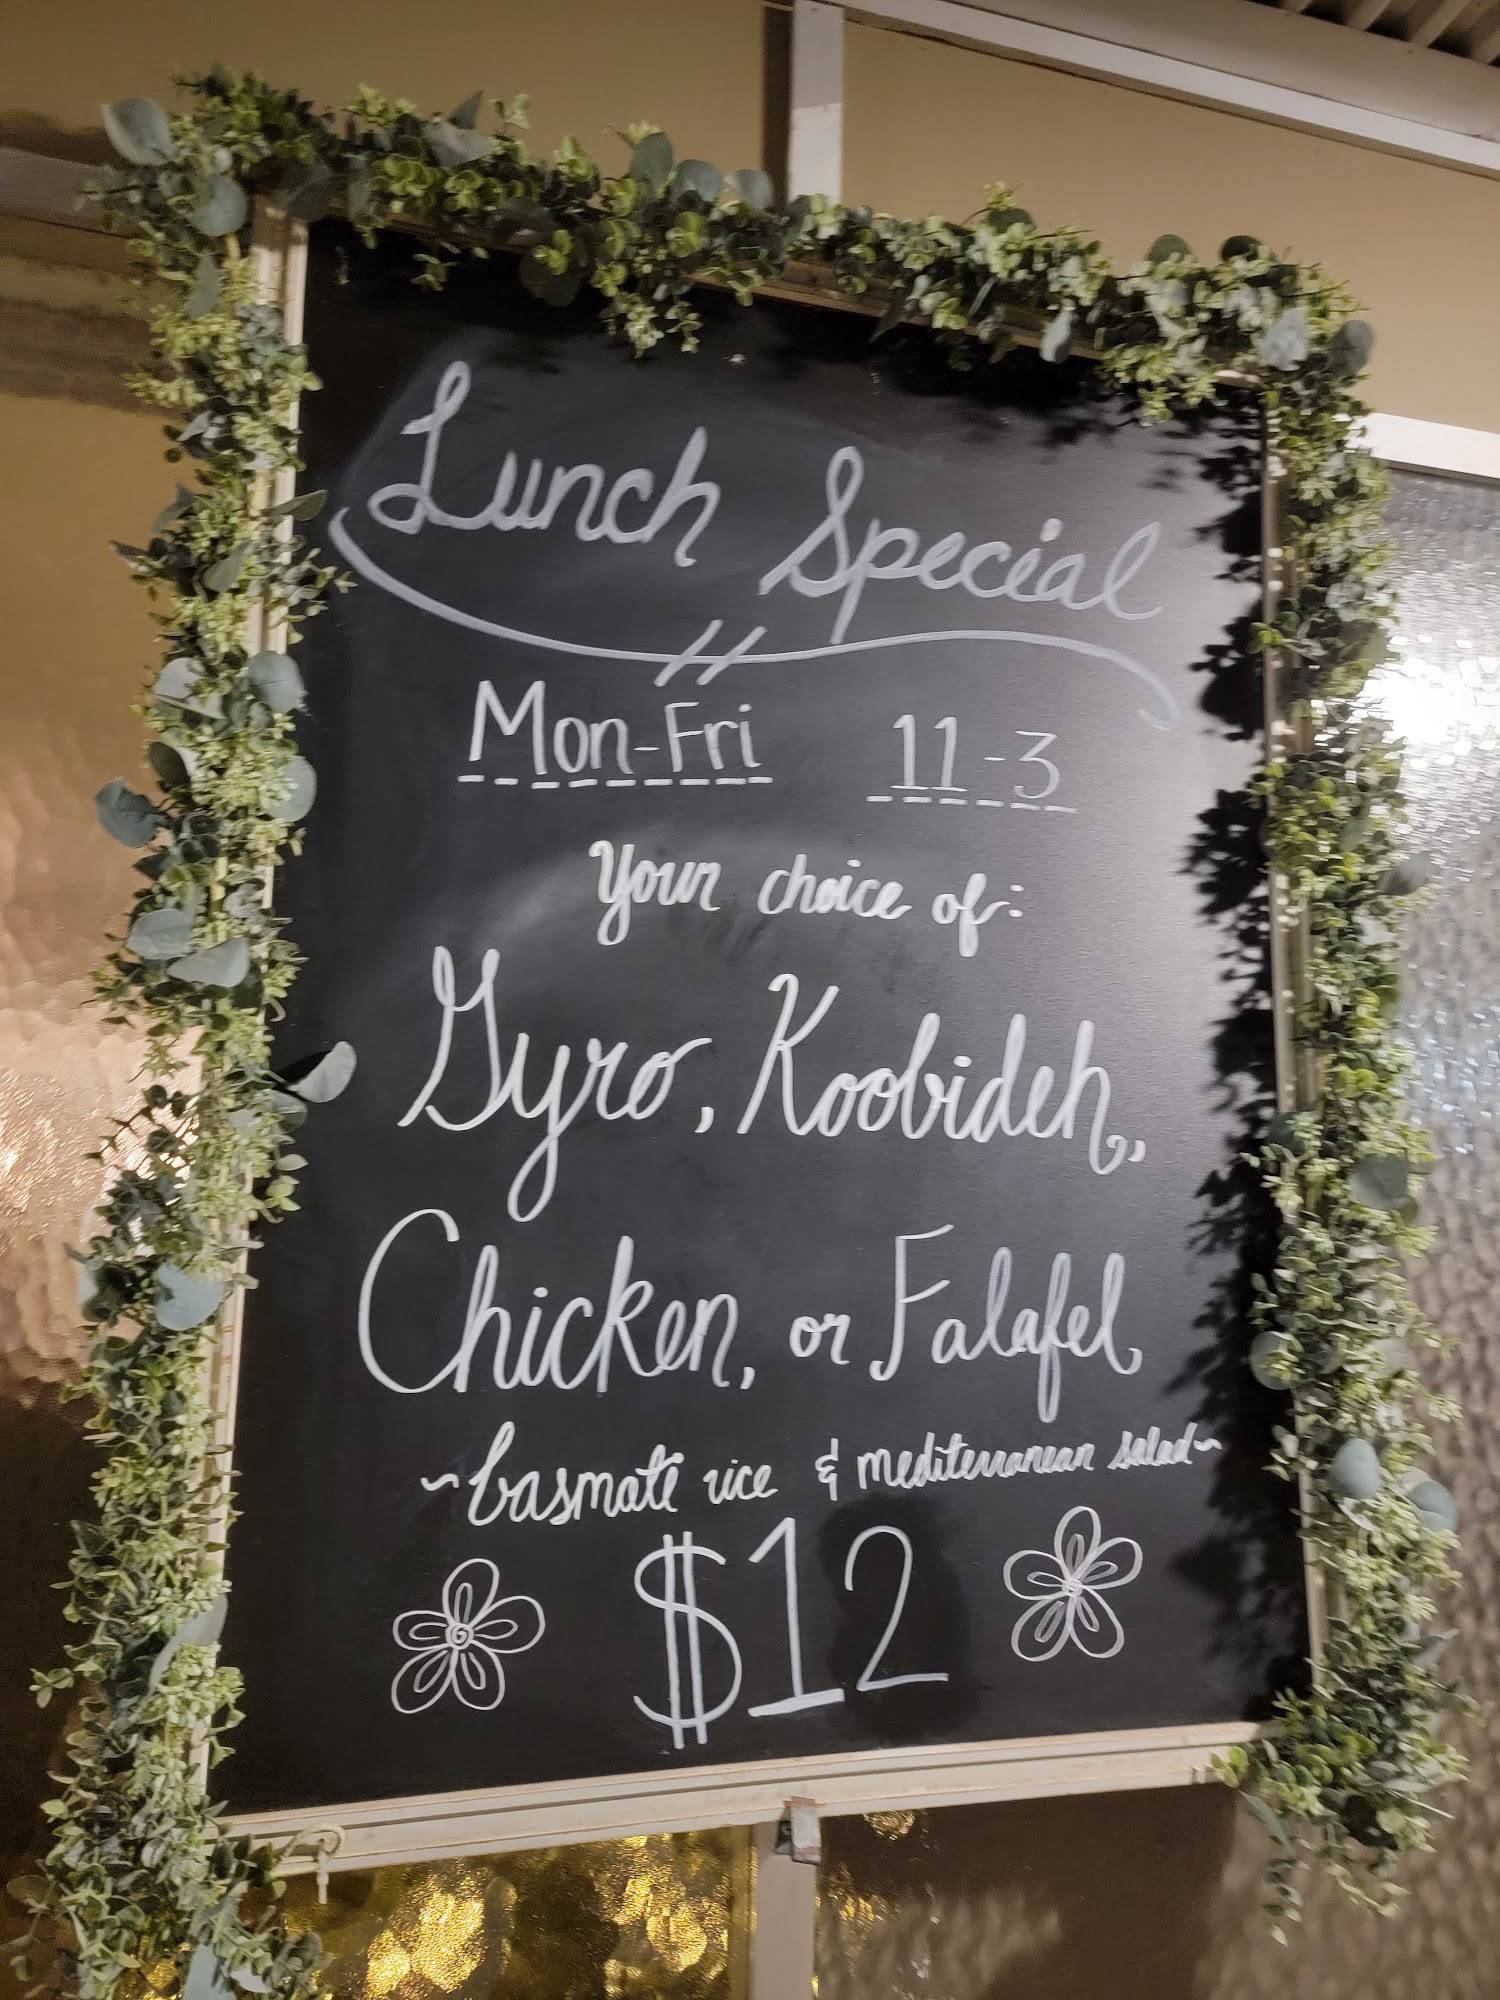 Lunch Special
Mon-Fri 11-3
Your choice of:
Gyro, Koobideh,
Chicken, or Falafel
~basmati rice & mediterranean salad~
$12